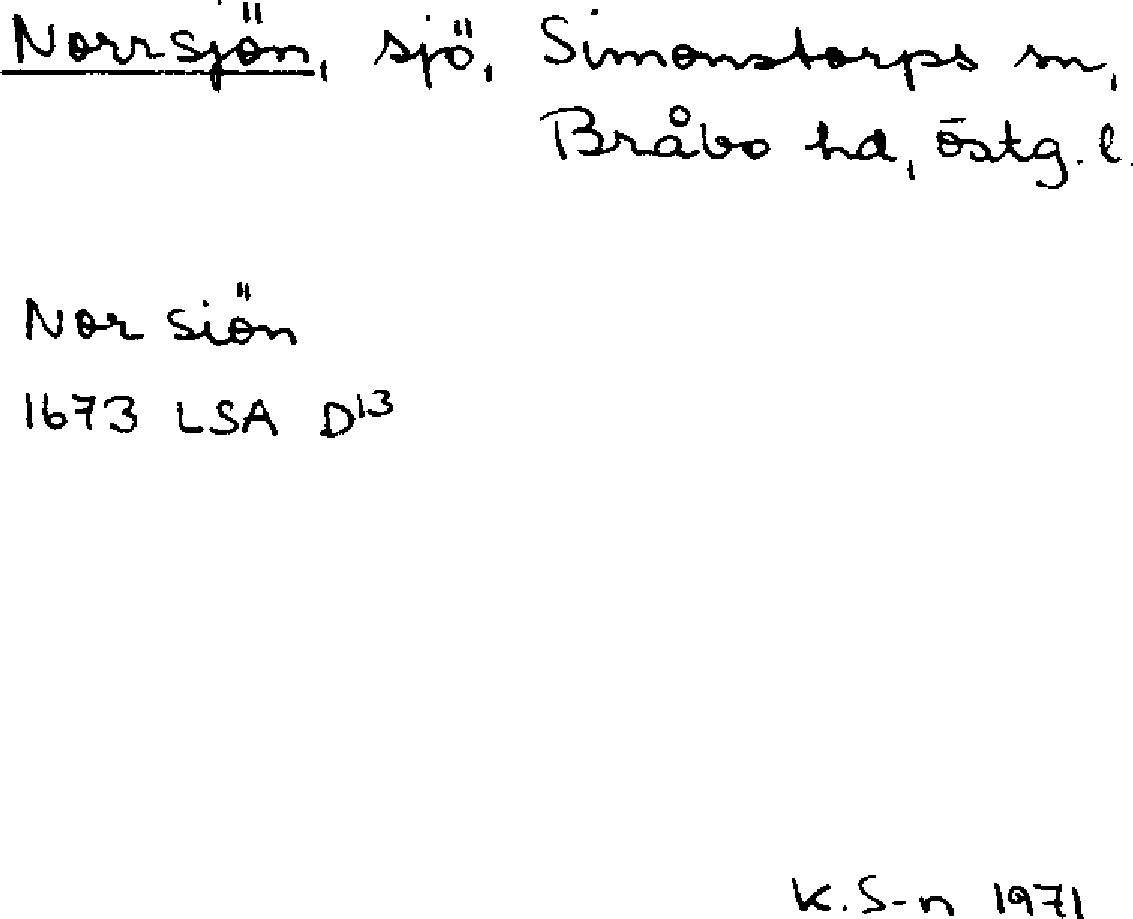 Norrsjön, sjö, Simonstorps sn,
Bråbo hd, Östg. l.
Nor Siön
1673 LSA D13
K. S-n 1971